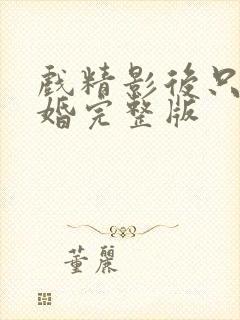 戲精影後只
婚完整版
董麗